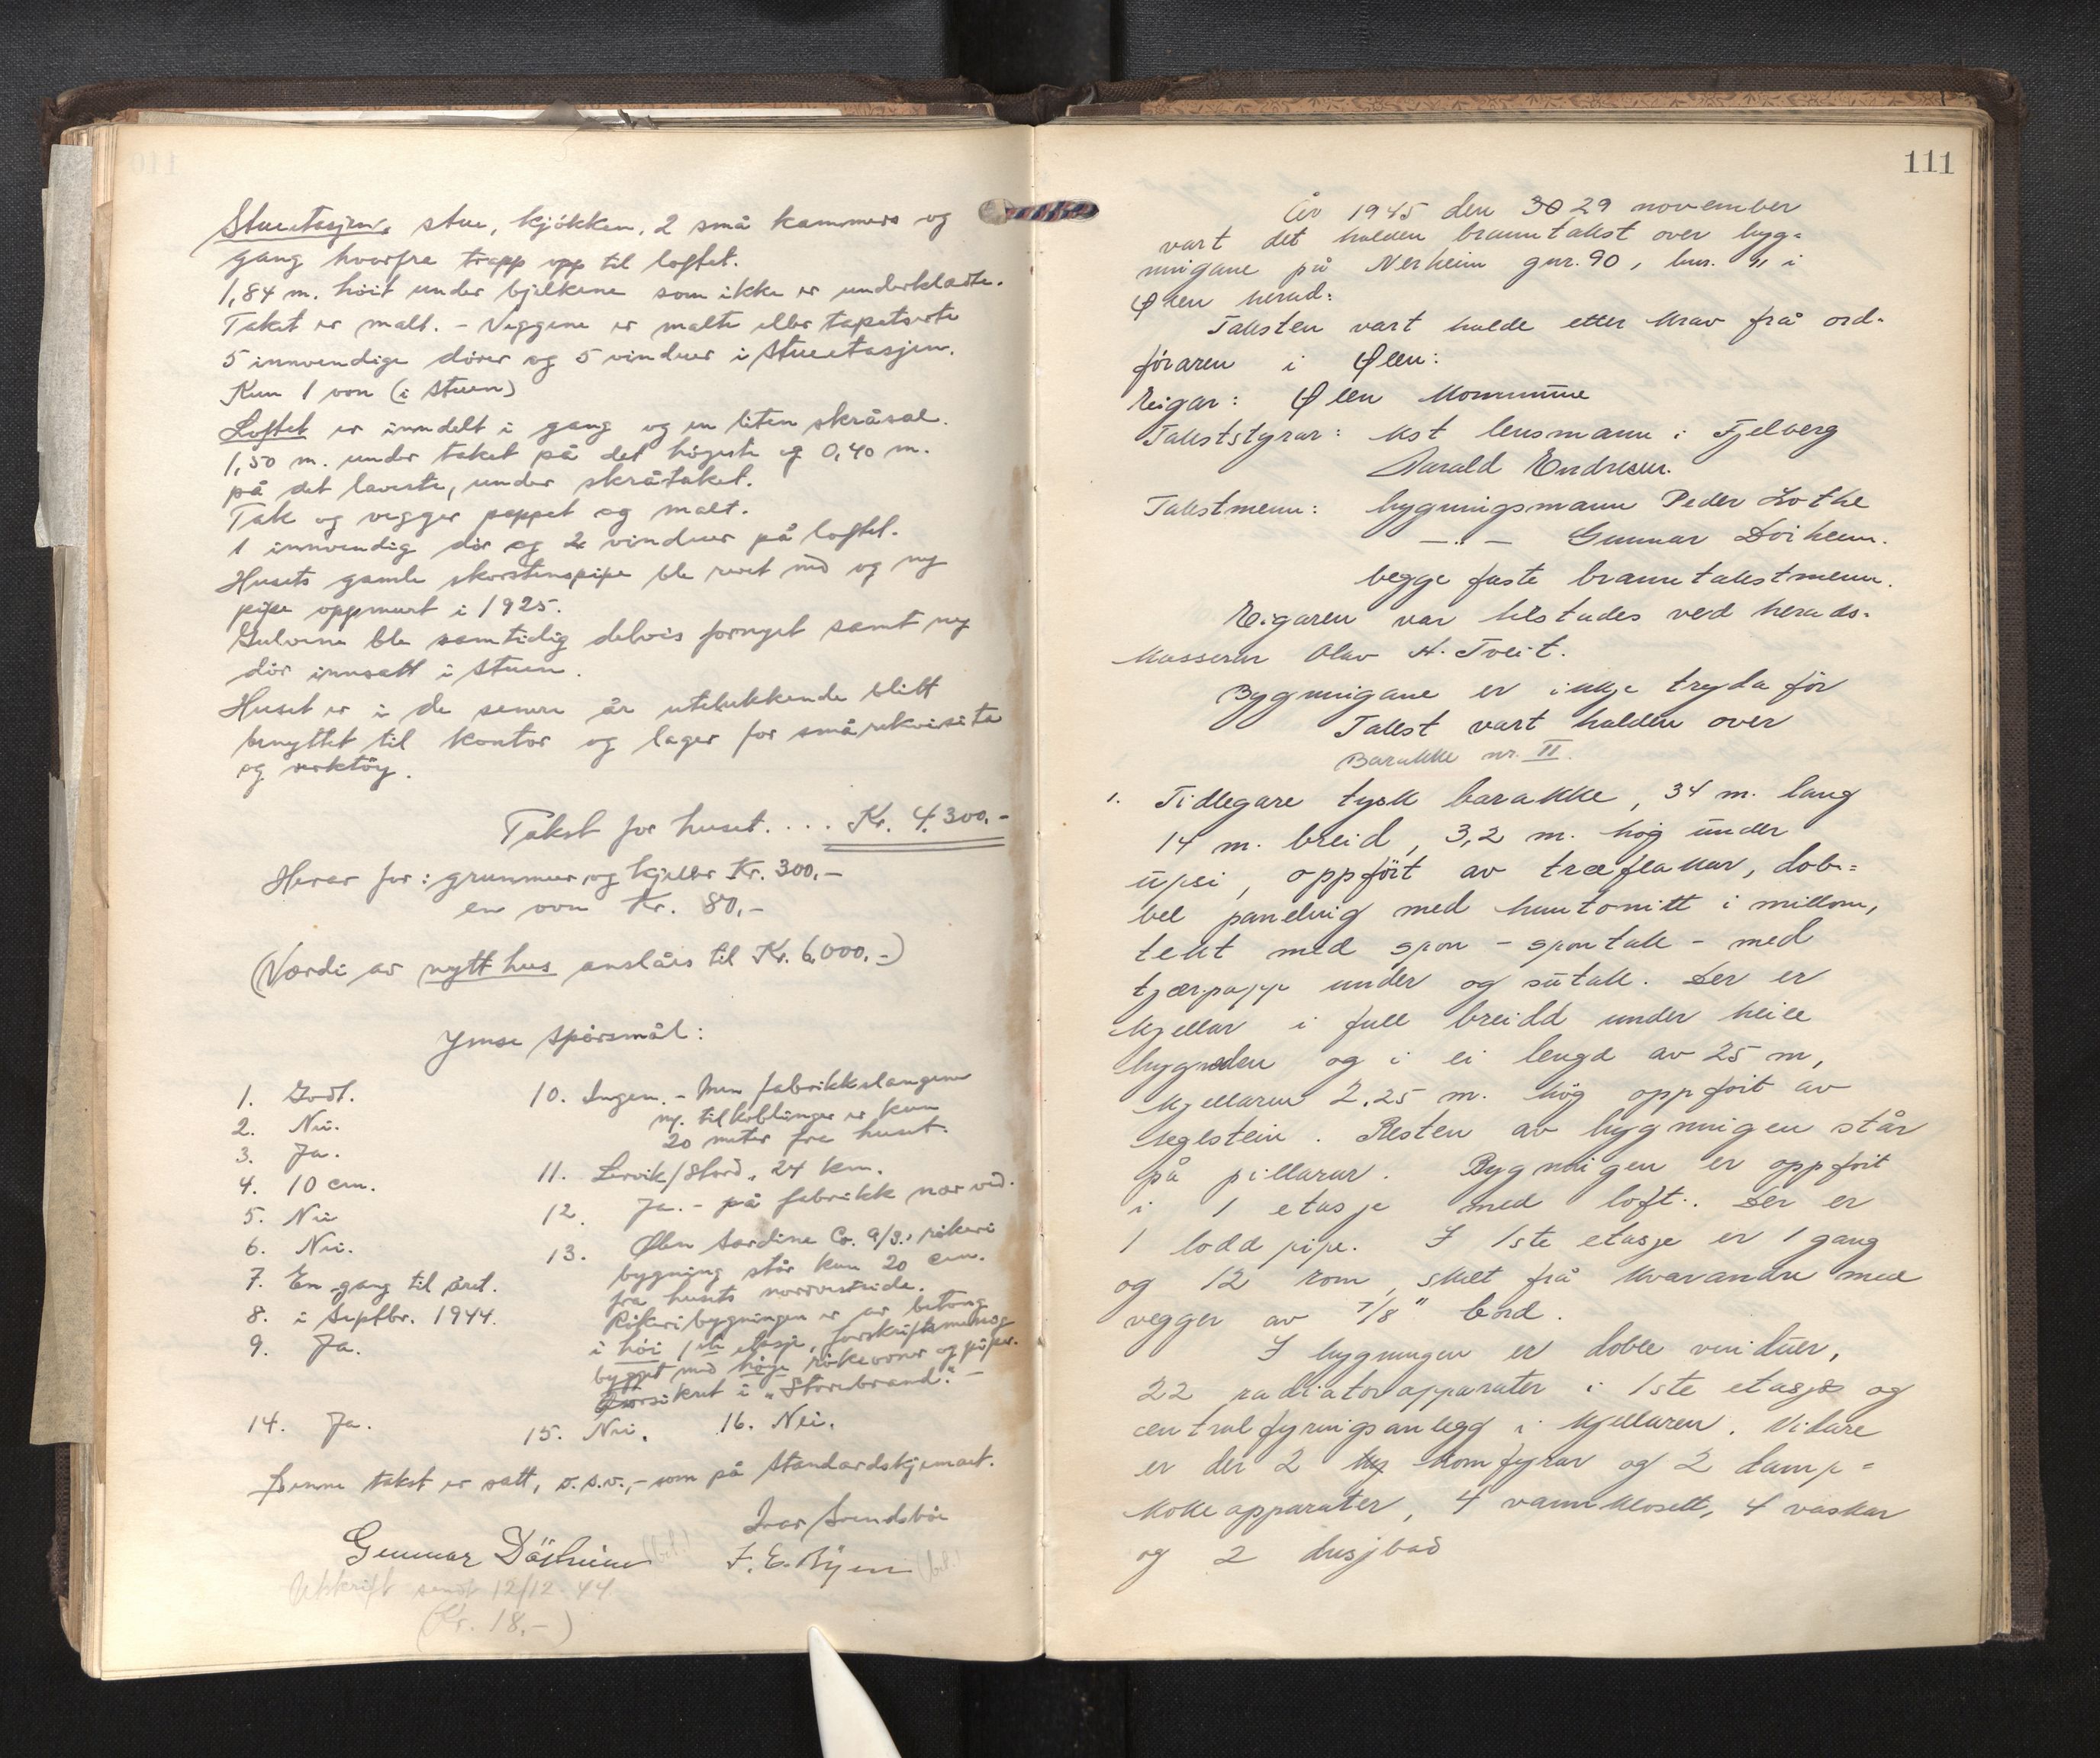 Stueetasjen, stue, kjökken, 2 små kammers og
gang hvorfra trapp opp til loftet.
1,84 m. höit under bjelkene som ikke er underkledte.
Taket er malt. – Veggene er malte eller tapetserte
5 innvendige dörer og 5 vinduer i stueetasjen.
Kun 1 ovn (i stuen)
Loftet er inndelt i gang og en liten skråsal.
1,50 m. under taket på det högeste og 0,40 m.
på det laveste, under skråtaket.
Tak og vegger pappet og malt.
1 innvendig dör og 2 vinduer på loftet.
Husets gamle skorstenspipe ble revet ned og ny
pipe oppmurt i 1925.
Gulvene ble samtidig delvis fornyet samt ny
dör innsatt i stuen.
Huset er i de senere år utelukkende blitt
benyttet til kontor og lager for smårekvisita
og verktöy.
Takst for huset. . . . Kr. 4.300.-
Herav for: grunnmur og kjeller Kr. 300,-
en ovn Kr. 80,-
(Verdi av nytt hus anslåes til Kr. 6.000.-)
Ymse spörsmål:
1. Godt.
2. Nei.
3. Ja.
4. 10 cm.
5. Nei
6. Nei.
7. En gang til året.
8. i Septbr. 1944.
9. Ja.
10. Ingen. – Men fabrikkslangene
m/. tilkoblinger er kun
20 meter fra huset.
11. Lervik/Stord, 24 km.
12. Ja. – på fabrikk nær ved.
13. Ölen Sardine Co. A/S., rökeri
bygning står kun 20 cm.
fra husets norvestside.
Rökeribygningen er av betong
i höi 1ste etasje, forskriftsmessig
bygget med höye rökeovner og piper.
forsikret i „Storebrand". –
14. Ja.
15. Nei.
16. Nei.
Denne takst er satt, o.s.v., – som på standardskjemaet.
Gunnar Döiheim (bil.)
Ivar Svendsböe
F. E. Bijen (bil.)
Utskrift sendt 12/12.44.
(Kr. 18,-)
111
År 1945 den 30 29 november
vart det halden branntakst over byg=
ningane på Nerheim gnr. 90, bnr. „ i
Ölen herad:
Taksten vart halde etter krav frå ord-
föraren i Ölen:
Eigar: Ölen Kommune
Takststyrar: kst lensmann i Fjelberg
Harald Endresen.
Takstmenn: bygningsmann Peder Lothe
— „ — Gunnar Döiheim.
begge faste branntakstmenn.
Eigaren var tilstades ved herads-
kasserer Olav H. Tveit.
Bygningane er ikkje trygda för
Takst vart halden over
Barakke nr. II.
1. Tidlegare tysk barakke, 34 m. lang
14 m. breid, 3,2 m. hög under
upsi, oppfört av treflakar, dob=
bel paneling med huntonitt i millom,
tekt med spon – spontak – med
tjærpapp under og sutak. Der er
kjellar i full breidd under heile
bygnaden og i ei lengd av 25 m,
kjellaren 2.25 m. hög oppfört av
teglstein. Resten av bygningen står
på pillarar. Bygningen er oppfört
i 1 etasje med loft. Der er
1 lodd pipe. I 1ste etasje er 1 gang
og 12 rom, skilt frå kvarandre med
vegger av 7/8" bord.
I bygningen er doble vinduer,
22 radiatorapparater i 1ste etasje og
centralfyringsanlegg i kjellaren. Vidare
er der 2 komfyrar og 2 damp=
kokeapparater, 4 vannklosett, 4 vaskar
og 2 dusjbad